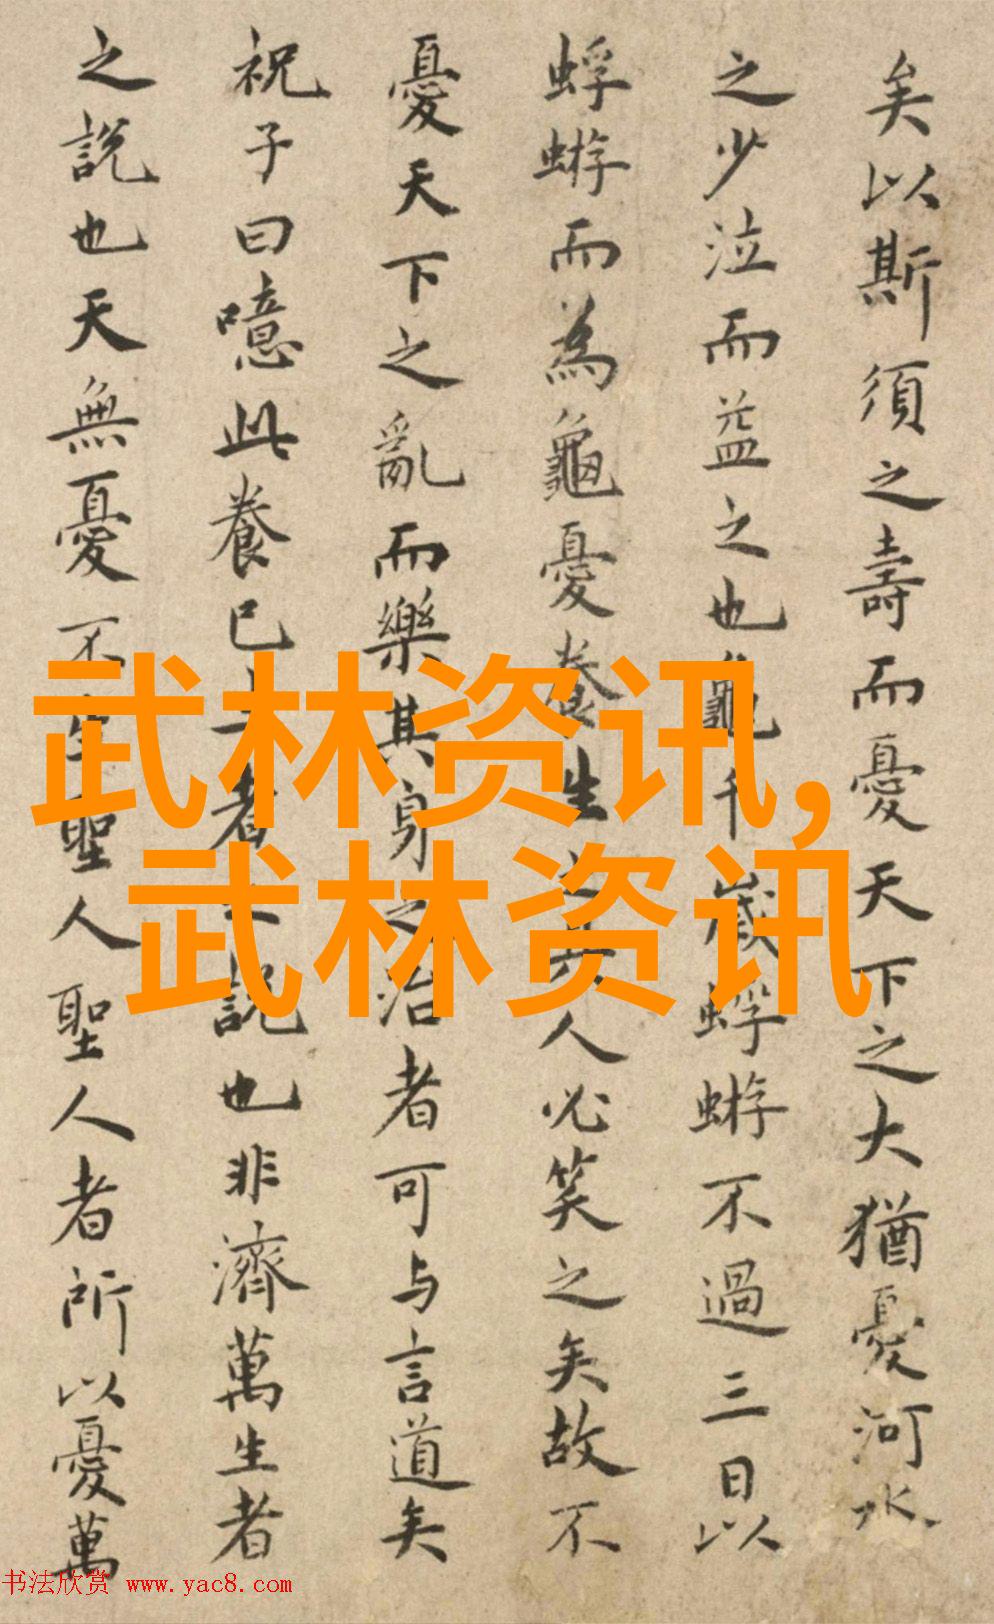 矣以斯須之壽而憂天下之大猶憂河水
之少泣而益之也龜千歲蜉蝣不過三日以
蜉蝣而為龜憂養生之人必笑之矣故不
憂天下之亂而樂其身之治者可与言道矣
祝子曰噫此養已者之說也非濟萬生者
之說也天無憂不生聖人聖人者所以憂萬
武林资讯,
武林资讯
书法欣赏 www.yac8.com